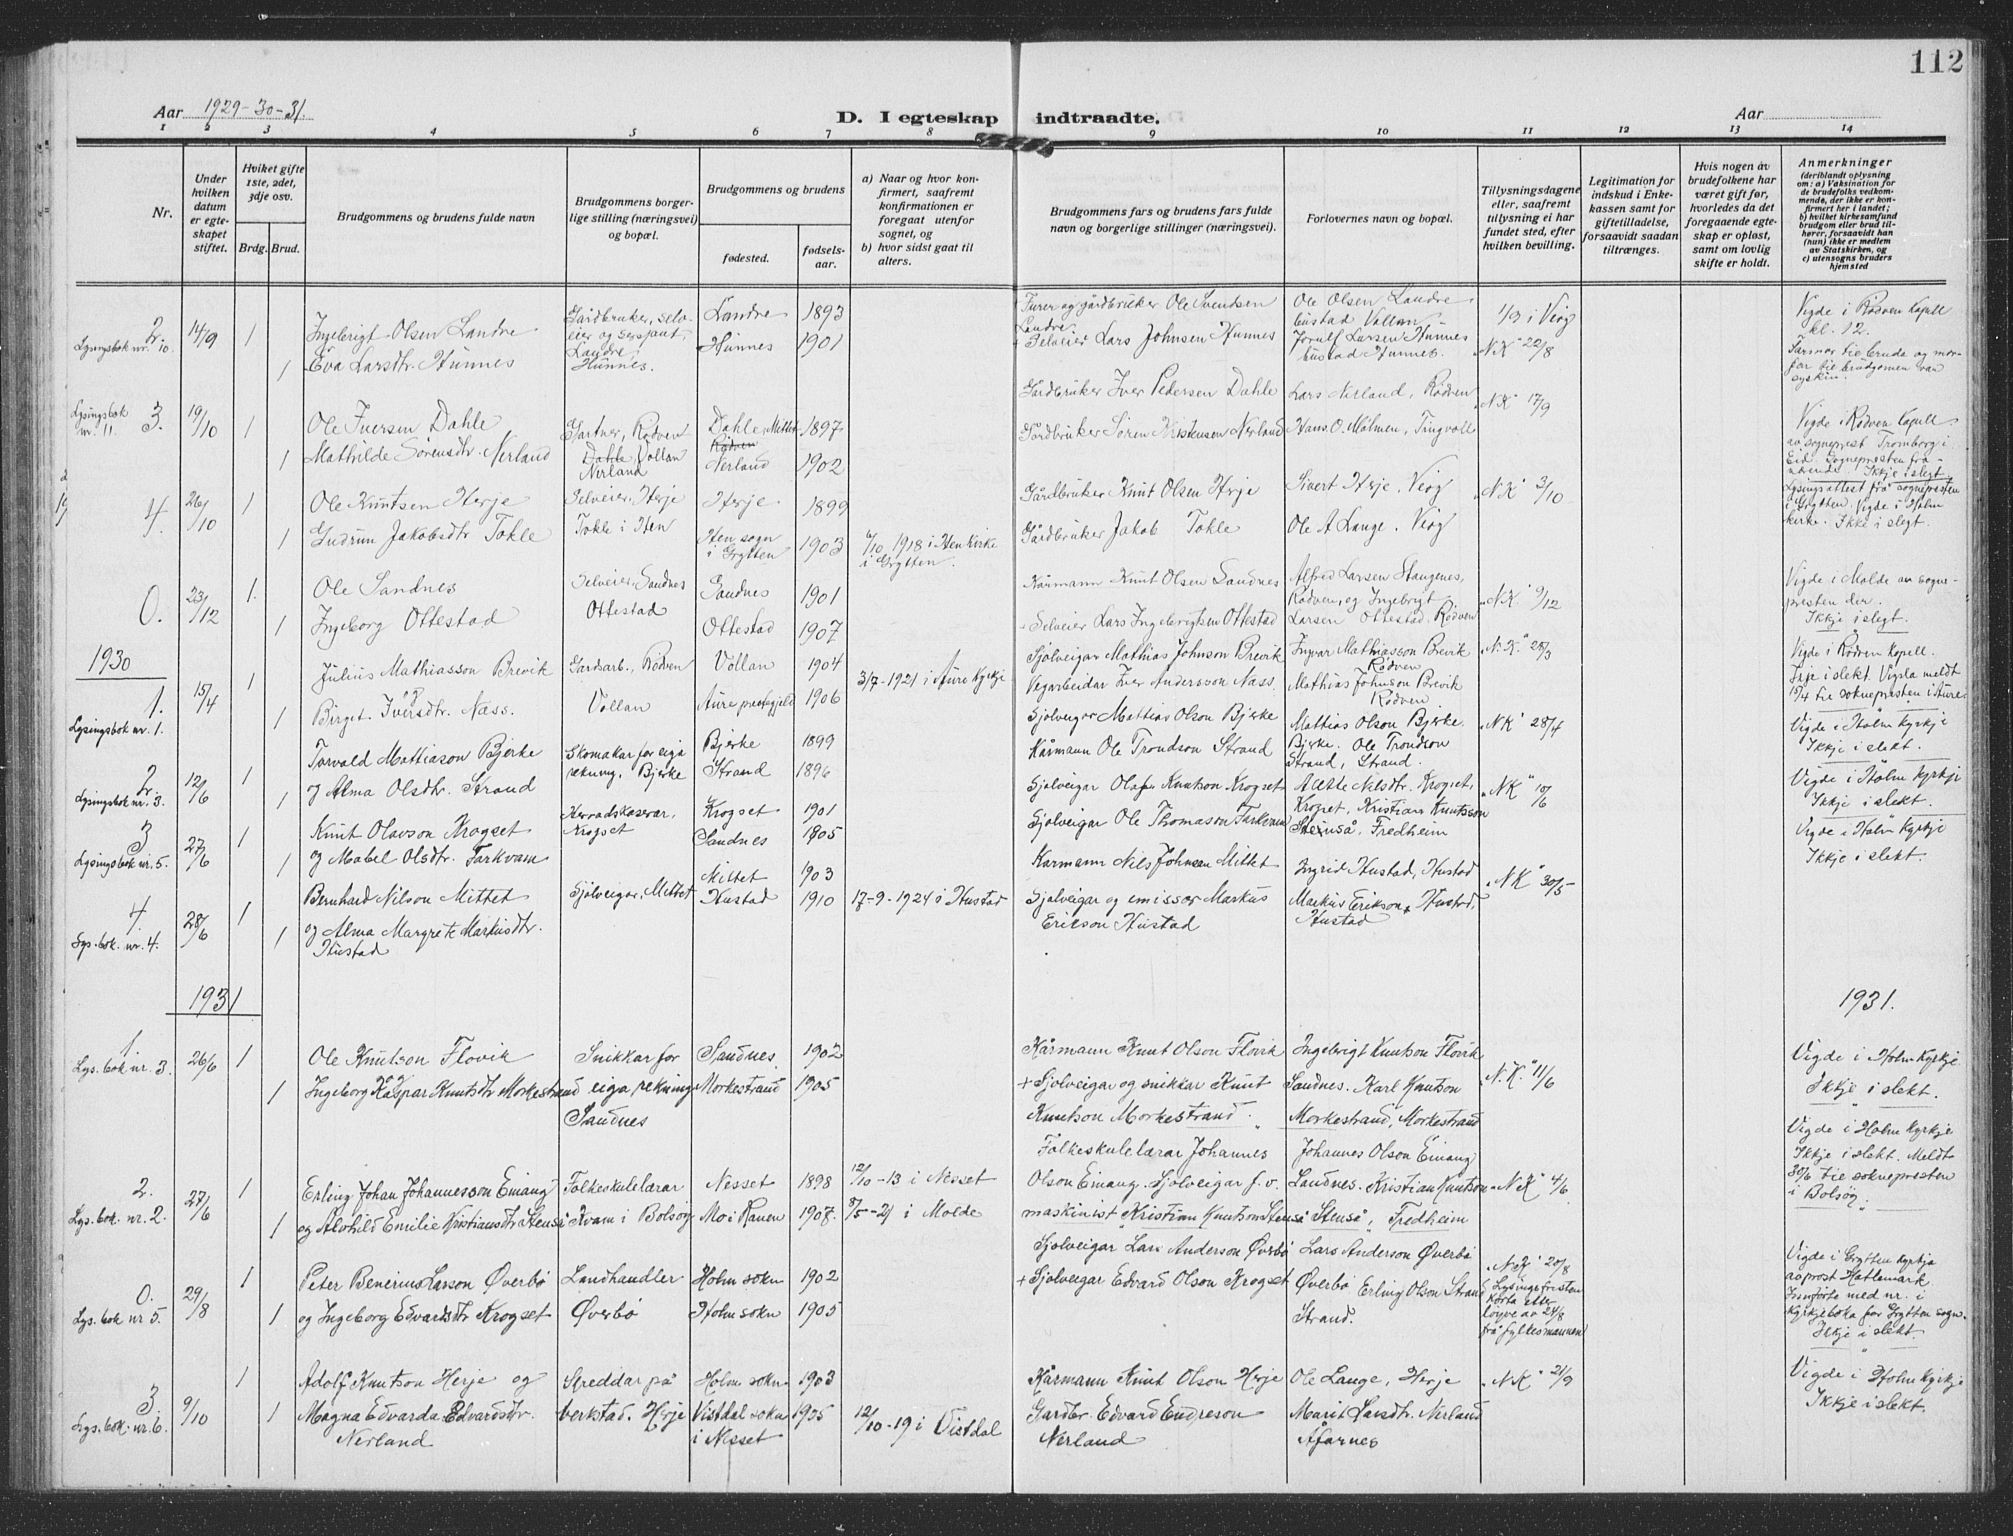 112
Aar 1929-30-31.
D. I egteskap indtraadte.
Aar
1 2 3 4 5 6 7 8 9 10 11 12 13 14
Nr.
Under hvilken datum er egteskapet stiftet.
Hviket gifte 1ste, 2det, 3dje osv.
Brdg. Brud.
Brudgommens og brudens fulde navn
Brudgommens borgerlige stilling (næringsvei) og bopæl.
Brudgommens og brudens
fødested.
fødselsaar.
a) Naar og hvor konfirmert, saafremt konfirmationen er foregaat utenfor sognet, og
b) hvor sidst gaat til alters.
Brudgommens fars og brudens fars fulde navn og borgerlige stillinger (næringsvei).
Forlovernes navn og bopæl.
Tillysningsdagene eller, saafremt tillysning ei har fundet sted, efter hvilken bevilling.
Legitimation for indskud i Enkekassen samt for giftetilladelse, forsaavidt saadan tiltrænges.
Hvis nogen av brudefolkene har været gift før, hvorledes da det foregaaende egteskap er opløst, samt om lovlig skifte er holdt.
Anmerkninger
(deriblandt oplysning om: a) Vaksination for de brudefolks vedkommende, der ikke er konfirmert her i landet; b) hvilket kirkesamfund brudgom eller brud tilhører, forsaavidt han (hun) ikke er medlem av Statskirken, og c) utensogns bruders hjemsted
2. Lysingsbok nr. 10. 14/9 1 Ingebrigt Olsen Landre Gårdbruker, selveier og sersjant, Landre. Landre 1893 Furer og gårdbruker Ole Svendsen Landre. Ole Olsen Landre, bustad Vollan 1/9 i Veøy
1 Eva Larsdtr. Hunnes Hunnes. Hunnes 1901 Selveier Lars Johnsen Hunnes Jorulf Larsen Hunnes bustad Hunnes. "N.K" 22/8
Vigde i Rødven Kapell kl. 12. Farmor til bruda og morfar til brudgomen var syskin.
Lysingsbok nr. 11 3. 19/10 1 Ole Iversen Dahle Gartner, Rødven Dahle, Mittet 1897 Gardbruker Iver Pedersen Dahle Lars Nerland, Rødven "N.K" 17/9
1 Mathilde Sørensdtr. Nerland Dahle, Vollan Nerland Rødven Nerland 1902 Gårdbruker Sören Kristensen Nerland Hans O. Mølmen, Tingvoll
Vigde i Rødven Kapell av sogneprest Tromborg i Eid. Sognepresten fråværende. Ikkje i slegt.
4. 26/10 1 Ole Knutsen Herje Selveier, Herje Herje 1899 Gårdbruker Knut Olsen Herje Sivert Herje, Veøy "N.K" 3/10
1 Gudrun Jakobsdtr Tokle Tokle i Hen Hen sogn i Grytten 1903 6/10 1918 i Hen Kirke i Grytten. Gårdbruker Jakob Tokle Ole A Lange. Veøy
Lysingsattest frå sognepresten i Grytten. Vigde i Holm kirke. Ikke i slegt.
0. 23/12 1. Ole Sandnes Selveier, Sandnes Sandnes 1901 Kårmann Knut Olsen Sandnes Alfred Larsen Haugenes, Rødven, og Ingebrigt "N.K." 9/12
1 Ingeborg Ottestad Ottestad Ottestad 1907 Selveier Lars Ingebrigtsen Ottestad Larsen Ottestad, Rødven
Vigde i Molde av sognepresten der. Ikkje i slegt.
1930
1. Lysingsbok nr. 1. 15/4 1 Julius Mathiasson Brevik Gardsarb., Rødven Vollan 1904 Sjølveigar Mathias Johnson Brevik Ingvar Mathiasson Brevik Rødven "N.K." 28/3
1 Birget Iversdtr. Næss. Vollan Aure prestegjeld 1906 3/7-1921 i Aure Kyrkje Vegarbeidar Iver Andersson Næss. Mathias Johnson Brevik Rødven
Vigde i Rødven Kapell. Ikje i slekt. Vigsla meldt 15/4 til soknepresten i Aure.
2. Lysingsbok nr. 3. 12/6 1 Torvald Mattiason Bjerke Skomakar for eiga rekning. Bjerke Bjerke 1899 Sjølveigar Mattias Olson Bjerke Mattias Olson Bjerke. Bjerke. "N.K" 28/4
1 og Alma Olsdtr. Strand Strand 1896 Kårmann Ole Trondson Strand Ole Trondson Strand, Strand.
Vigde i Holm Kyrkje Ikkje i slekt.
3 Lysingsbok nr. 5. 27/6 1 Knut Olavson Krogset Herradskaserar, Krogset Krogset 1901 Sjølveigar Olafn Knutson Krogset Aette Nilsdtr. Krogset, Krogset, "N.K" 10/6
1 og Mabel Olsdtr. Tarkvam Sandnes 1905 Sjølveigar Ole Thomason Tarkvam Kristian Knutsson Stenså, Fredheim
Vigde i Holm Kyrkje Ikkje i slekt.
4. Lys. bok. nr. 4. 28/6 1 Bernhard Nilson Mittet Sjölveigar, Mittet Mittet 1903 Karmann Nils Johnsen Mittet Ingrid Hustad, Hustad "N.K" 30/5
1 og Alma Margrete Markusdtr. Hustad Hustad 1910 17-9-1924 i Hustad Sjølveigar og emissær Markus Erikson Hustad Markus Erikson Hustad, Hustad
Vigde i Holm Kyrkje Ikkje i slekt.
1931
1931.
1 Lys. bok nr. 3. 26/6 1 Ole Knutson Flovik Snikkar for Sandnes 1902 Kårmann Knut Olson Flovik Ingebrigt Knutson Flovik "N.K." 11/6
1 Ingeborg Kaspar Knutsdtr Morkestrand eiga rekning Sandnes Morkestrand 1905 + Sjølveigar og snikkar Knut Knutson Morkestrand. Sandnes. Karl Knutson Morkestrand, Morkestrand
Vigde i Holm Kyrkje Ikkje i slekt.
2. Lys. bok. nr. 2. 27/6 1 Erling Johan Johannesson Einang Folkeskulelærar Nesset 1898 12/10-13 i Nesset Folkeskulelærar Johannes Olson Einang. Johannes Olson Einang Sandnes. "N.K" 4/6
1 og Alvhild Emilie Kristiansdtr Stenså Kvam i Bolsøy Mo i Ranen 1907. 8/5-21 i Molde Sjølveigar f. v. maskinist Kristian Knutson Stenså Kristian Knutson Stenså, Fredheim
Vigde i Holm Kyrkje Ikkje i slekt. Meldt 30/6 til soknepresten i Bolsøy.
0. Lys. bok nr 5. 29/8 1 Peter Benerius Larsson Øverbø Landhandler Holm sokn 1902 Sjølveigar Lars Anderson Øverbø Lars Anderson Øverbø Øverbø "N.K" 20/8
1 og Ingeborg Edvardsdtr Krogset Øverbø Holm sokn 1905 + Sjølveigar Edvard Olson Krogset Erling Olson Strand Strand. (Lysingsfristen korta etter løyve av 24/8 frå fylkesmannen
Vigde i Grytten Kyrkje av prost Hattemark. Innførte med nr. i Kyrkjeboka for Grytten sogn. Ikkje i slekt.
3. Lys. bok. nr. 6. 9/10 1 Adolf Knutson Herje og Skreddar på Holm sokn 1903 Kårmann Knut Olson Herje Ole Lange, Herje "N.K" 21/9
1 Magna Edvarda Edvardsdtr. Nerland verkstad. Herje Vistdal sokn i Nesset 1905 12/10-19 i Vistdal Gardbr. Edvard Endreson Nerland Marit Larsdtr. Nerland Åfarnes
Vigde i Holm Kyrkje Ikkje i slekt.